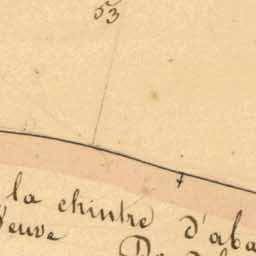 53
la chintre d'aba
Veuve